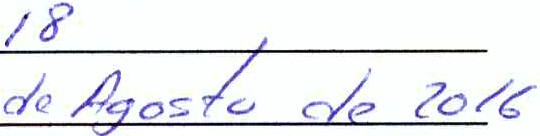 18
de Agosto de 2016